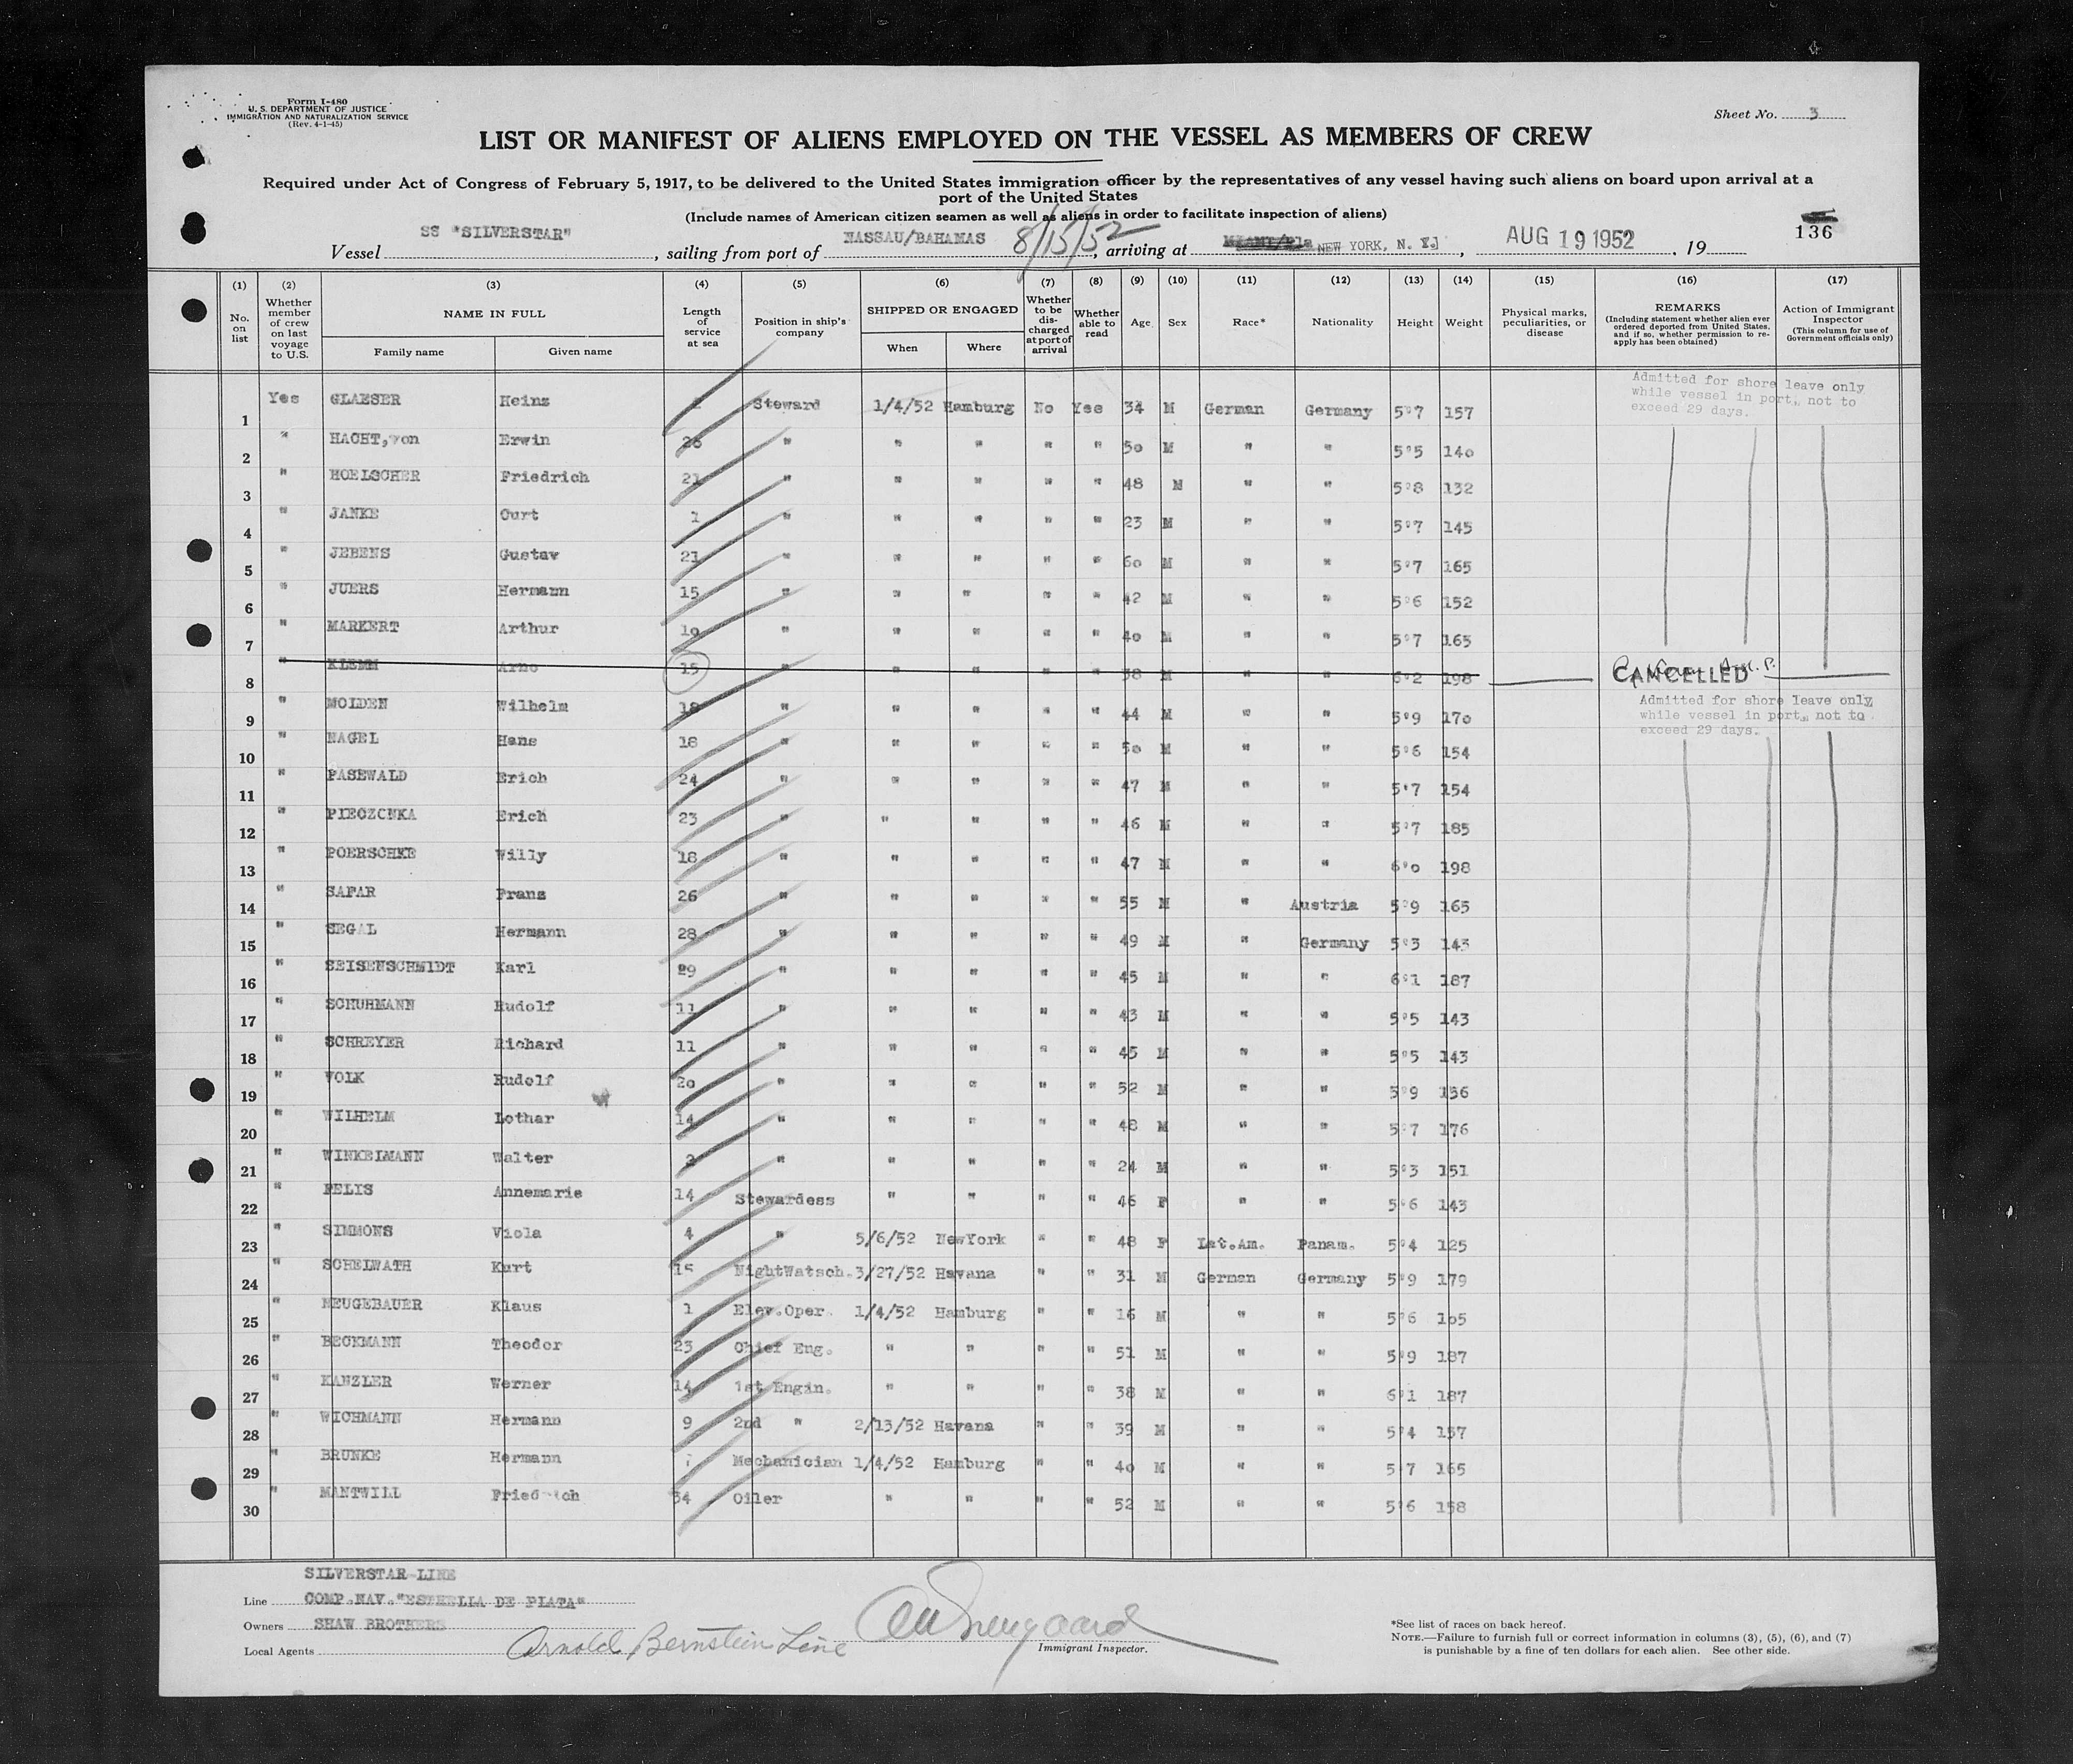 Form I-480
U. S. DEPARTMENT OF JUSTICE
IMMIGRATION AND NATURALIZATION SERVICE
(Rev. 4-1-45)
Sheet No. 3
LIST OR MANIFEST OF ALIENS EMPLOYED ON THE VESSEL AS MEMBERS OF CREW
Required under Act of Congress of February 5, 1917, to be delivered to the United States immigration officer by the representatives of any vessel having such aliens on board upon arrival at a
port of the United States
(Include names of American citizen seamen as well as aliens in order to facilitate inspection of aliens)
136
Vessel SS "SILVERSTAR", sailing from port of NASSAU/BAHAMAS 8/15/52, arriving at MIAMI/Fla NEW YORK, N. Y., AUG 19 1952, 19
(1) (2) (3) (4) (5) (6) (7) (8) (9) (10) (11) (12) (13) (14) (15) (16) (17)
No. on list | Whether member of crew on last voyage to U.S. | NAME IN FULL | Family name | Given name | Length of service at sea | Position in ship's company | SHIPPED OR ENGAGED | When | Where | Whether to be discharged at port of arrival | Whether able to read | Age | Sex | Race* | Nationality | Height | Weight | Physical marks, peculiarities, or disease | REMARKS (Including statement whether alien ever ordered deported from United States, and if so, whether permission to re-apply has been obtained) | Action of Immigrant Inspector (This column for use of Government officials only)
1 Yes GLAESER Heinz Steward 1/4/52 Hamburg No Yes 34 M German Germany 5'7 157 Admitted for shore leave only while vessel in port, not to exceed 29 days.
2 " HACHT, von Erwin 26 " " " " " 50 M " " 5'5 140
3 " HOELSCHER Friedrich 21 " " " " " 48 M " " 5'8 132
4 " JANKE Curt 1 " " " " " 23 M " " 5'7 145
5 " JEBENS Gustav 21 " " " " " 60 M " " 5'7 165
6 " JUERS Hermann 15 " " " " " 42 M " " 5'6 152
7 " MARKERT Arthur 10 " " " " " 40 M " " 5'7 165
8 " KLEMM Arno 15 " " " " " 38 M " " 6'2 198 CANCELLED
9 " MOLDEN Wilhelm 18 " " " " " 44 M " " 5'9 170 Admitted for shore leave only while vessel in port, not to exceed 29 days.
10 " NAGEL Hans 18 " " " " " 50 M " " 5'6 154
11 " PASEWALD Erich 24 " " " " " 47 M " " 5'7 154
12 " PIECZONKA Erich 23 " " " " " 46 M " " 5'7 185
13 " POERSCHKE Willy 18 " " " " " 47 M " " 6'0 198
14 " SAFAR Franz 26 " " " " " 55 M " Austria 5'9 165
15 " SEGAL Hermann 28 " " " " " 49 M " Germany 5'3 143
16 " SEISENSCHMIDT Karl 29 " " " " " 45 M " " 6'1 187
17 " SCHUHMANN Rudolf 11 " " " " " 43 M " " 5'5 143
18 " SCHREYER Richard 11 " " " " " 45 M " " 5'5 143
19 " VOLK Rudolf 20 " " " " " 52 M " " 5'9 156
20 " WILHELM Lothar 14 " " " " " 48 M " " 5'7 176
21 " WINKELMANN Walter 2 " " " " " 24 M " " 5'3 151
22 " PELIS Annemarie 14 Stewardess " " " " 46 F " " 5'6 143
23 " SIMMONS Viola 4 " 5/6/52 NewYork " " 48 F Lat.Am. Panam. 5'4 125
24 " SCHELWATH Kurt 15 NightWatsch. 3/27/52 Havana " " 31 M German Germany 5'9 179
25 " NEUGEBAUER Klaus 1 Elev.Oper. 1/4/52 Hamburg " " 16 M " " 5'6 165
26 " BECKMANN Theodor 23 Chief Eng. " " " " 51 M " " 5'9 187
27 " KANZLER Werner 14 1st Engin. " " " " 38 M " " 6'1 187
28 " WICHMANN Hermann 9 2nd " 2/13/52 Havana " " 39 M " " 5'4 157
29 " BRUNKE Hermann 7 Mechanician 1/4/52 Hamburg " " 40 M " " 5'7 165
30 " MANTWILL Friedrich 34 Oiler " " " " 52 M " " 5'6 158
SILVERSTAR-LINE
Line COMP.NAV."ESTRELLA DE PLATA"
Owners SHAW BROTHERS
Local Agents Arnold Bernstein Line
Immigrant Inspector.
*See list of races on back hereof.
NOTE.—Failure to furnish full or correct information in columns (3), (5), (6), and (7)
is punishable by a fine of ten dollars for each alien. See other side.